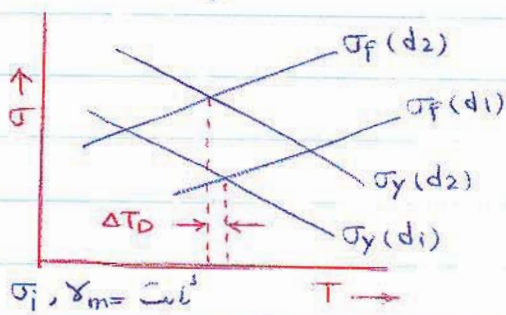 σf (d2)
↑
σ
σf (d1)
σy (d2)
ΔTD → ←
σy (d1)
σi , γm = ثابت
T →